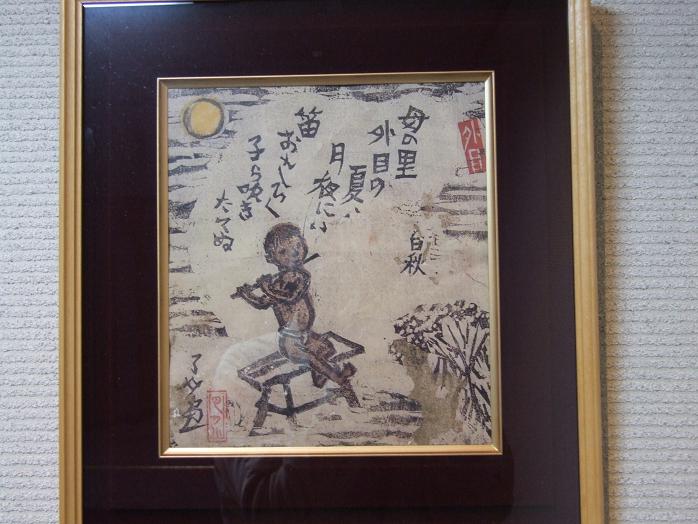 外目
母の里
外目の
夏ハ
月夜にハ
笛
おもしろく
子ら吹き
たてぬ
白秋